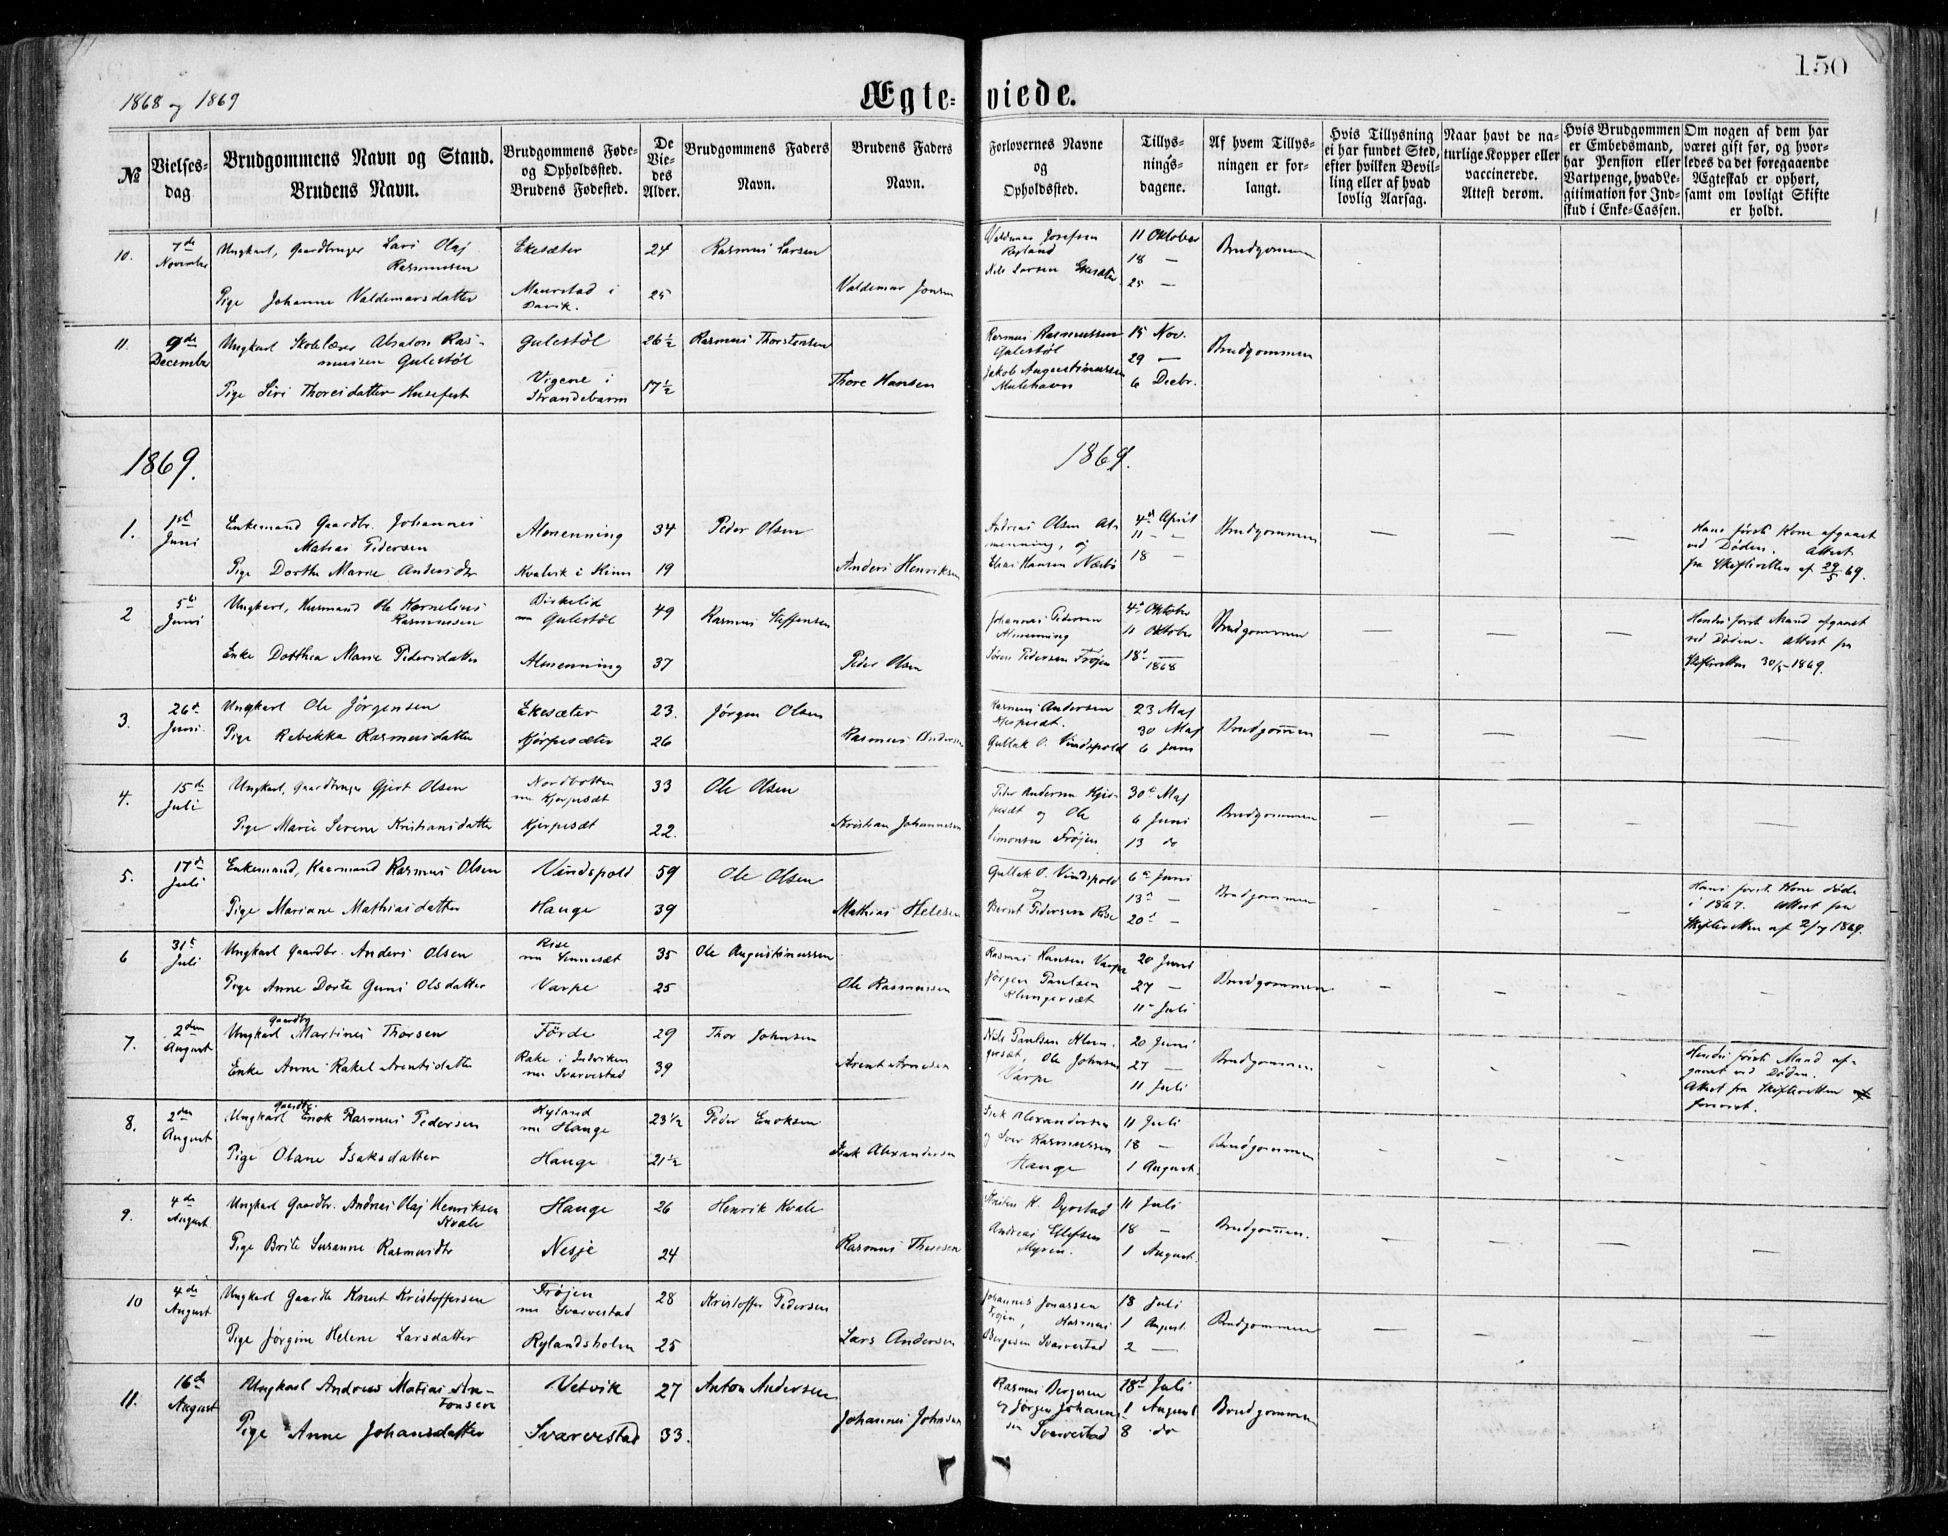 150
1868 og 1869
Ægte=viede.
№
Vielses=
dag
Brudgommens Navn og Stand.
Brudens Navn.
Brudgommens Føde=
og Opholdssted.
Brudens Fødested.
De
Vie=
des
Alder.
Brudgommens Faders
Navn.
Brudens Faders
Navn.
Forlovernes Navne
og
Opholdssted.
Tillys=
nings=
dagene.
Af hvem Tillys=
ningen er for=
langt.
Hvis Tillysning
ei har fundet Sted,
efter hvilken Bevil=
ling eller af hvad
lovlig Aarsag.
Naar havt de na=
turlige Kopper eller
vaccinerede.
Attest derom.
Hvis Brudgommen
er Embedsmand,
har Pension eller
Vartpenge, hvad Le=
gitimation for Ind=
skud i Enke-Cassen.
Om nogen af dem har
været gift før, og hvor=
ledes da det foregaaende
Ægteskab er ophørt,
samt om lovligt Skifte
er holdt.
10.
7de
November
Ungkarl, Gaardbruger Lars Olaj
Rasmussen
Ekesæter
24
Rasmus Larsen
Valdemar Josefsen
Ryland
Nils Larsen Ekesæter
11 Oktober
18 —
25 —
Brudgommen
Pige Johanne Valdemarsdatter
Maurstad i
Davik.
25
Valdemar Jonsen
11
9de
December
Ungkarl Skolelærer Absalon Ras-
mussen Gulestøl
Gulestøl
26½
Rasmus Thorstensen
Rasmus Rasmussen
Gulestøl
Jakob Augustinussen
Mulehavn
15 Nov.
29 —
6 Decbr.
Brudgommen
Pige Siri Thoresdatter Husefest
Vigene i
Strandebarm
17½
Thore Hansen
1869.
1869.
1.
1ste
Juni
Enkemand Gaardbr. Johannes
Matias Pedersen
Almenning
34
Peder Olsen
Andreas Olsen Al-
menning, og
Elias Hansen Nærbø
4de April
11 — "
18 —
Brudgommen
— — —
Hans første Kone afgaaet
ved Døden. Attest
fra Skifteretten af 29/5 69.
Pige Dorthe Marie Andersdtr
Kvalvik i Kinn
19
Anders Henriksen
2
5te
Juni
Ungkarl, Husmand Ole Kornelius
Rasmussen
Birkelid
nu Gulestøl
49
Rasmus Steffensen
Johannes Pedersen
Almenning
Søren Pedersen Frøjen
4de Oktober
11 Oktober
18de —
1868
Brudgommen
— — —
Hendes første Mand afgaaet
ved Døden. Attest fra
Skifteretten 30/5 1869.
Enke Dorthea Marie Pedersdatter
Almenning
37
Peder Olsen
3.
26de
Juni.
Ungkarl Ole Jørgensen
Ekesæter
23.
Jørgen Olsen
Rasmus Andersen
Kjerpesæt.
Gullak O. Vindspold
23 Maj
30 Maj
6 Juni
Brudgommen
— — — —
Pige Rebekka Rasmusdatter
Kjørpesæter
26
Rasmus Andersen
4.
15de
Juli
Ungkarl, Gaardbruger Gjert Olsen
Nordbotten
nu Kjerpesæt
33
Ole Olsen
Peder Andersen Kjer-
pesæt og Ole
Simonsen Frøjen
30te Maj
6 Juni
13 do
Brudgommen
— — — —
Pige Marie Serene Kristiansdatter
Kjerpesæt
22.
Kristian Johannesen
5.
17de
Juli
Enkemand, Kaarmand Rasmus Olsen
Vindspold
59
Ole Olsen
Gullak O. Vindspold
og
Bernt Pedersen Rise
6te Juni
13de —
20de —
Brudgommen
— — —
Hans første Kone døde
i 1867. Attest fra
Skifteretten af 2/7 1869.
Pige Mariane Mathiasdatter
Hauge
39
Mathias Helesen
6
31te
Juli
Ungkarl Gaardbr. Anders Olsen
Rise
nu Sennesæt
35
Ole Augustinussen
Rasmus Hansen Varpe
Jørgen Paulsen
Klungersæt
20 Juni
27 —
11te Juli
Brudgommen
— — — —
Pige Anne Dorte Guni Olsdatter
Varpe
25
Ole Rasmussen
7.
2den
August
Gaardbr
Ungkarl Martines Thorsen
Førde
29
Thor Johnsen
Nils Paulsen Klun-
gesæt, Ole Johnsen
Varpe
20 Juni
27 —
11 Juli
Brudgommen
— — —
Hendes første Mand af-
gaaet ved Døden.
Attest fra Skifteretten
foreviist.
Enke Anne Rakel Arentsdatter
Rake i Indviken
nu Svarvestad
39
Arent Arnesen
8.
2den
August
Gaardbr.
Ungkarl Enok Rasmus Pedersen
Ryland
nu Hauge
23½
Peder Enoksen
Isak Alexandersen
og Iver Rasmussen
Hauge
11 Juli
18 —
1 August
Brudgommen
— — — —
Pige Olane Isaksdatter
Hauge
21½
Isak Alexandersen
9.
4de
August
Ungkarl Gaardbr. Andreas Olaj Henriksen
Kvale
Hauge
26
Henrik Kvale
Kristen H. Dyrstad
Andreas Ellefsen
Myren.
11 Juli
18 —
1 August.
Brudgommen.
— — — —
Pige Brite Susanne Rasmusdtr
Nesje
24
Rasmus Thoresen
10
4de
August
Ungkarl Gaardbr Knut Kristoffersen
Frøjen
nu Svarvestad
28
Kristoffer Pedersen
Johannes Jonassen
Frøjen, Rasmus
Bergesen Svarvestad
18 Juli
1 August.
2 —
Brudgommen
— — — —
Pige Jørgine Helene Larsdatter
Rylandsholm
25
Lars Andersen
11.
16de
August
Ungkarl Andreas Matias An-
tonsen
Vetvik
27
Anton Andersen
Rasmus Bergesen
og Jørgen Johannes-
sen Svarvestad
18de Juli
1 August
8 do
Brudgommen
Pige Anne Johansdatter
Svarvestad
33.
Johannes Johnsen